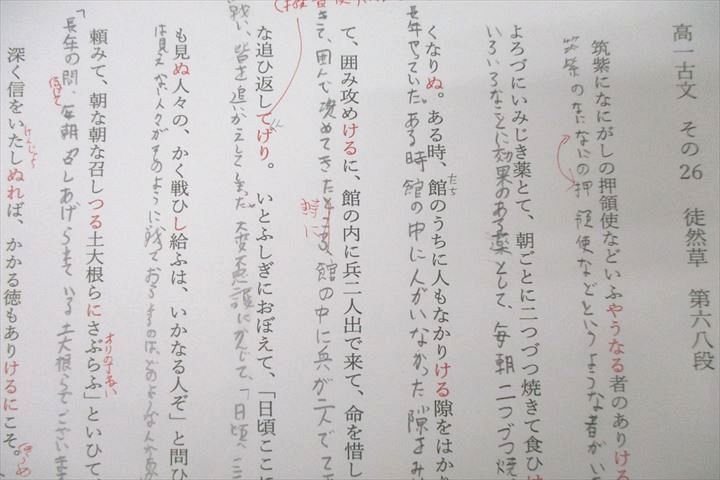 高一古文　その26　徒然草　第六八段
筑紫になにがしの押領使などいふやうなる者のありける
筑紫のなになにの押領使などというような者がい
よろづにいみじき薬とて、朝ごとに二つづつ焼きて食ひけ
いろいろなことに効果のある薬として、毎朝二つづつ焼
くなりぬ。ある時、館のうちに人もなかりける隙をはか
たち
長年やっていた。ある時館の中に人がいなかった隙を
て、囲み攻めけるに、館の内に兵二人出で来て、命を惜し
きて、囲んで攻めてきた
時に
館の中に兵が二人でて
な追ひ返してげり。　いとふしぎにおぼえて、「日頃ここに
戦い、皆を追いかえしてしまった。大変不思議にかんじて、「日頃
も見ぬ人々の、かく戦ひし給ふは、いかなる人ぞ」と問ひ
は見えない人々がこのように戦って
頼みて、朝な朝な召しつる土大根らにさぶらふ」といひて、
「長年の間、毎朝召しあげられている土大根らでございま
深く信をいたしぬれば、かかる徳もありけるにこそ。